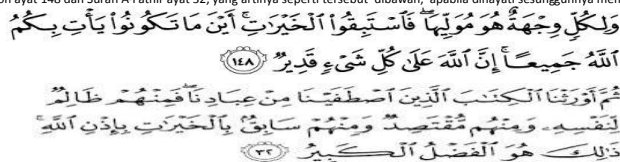 ayat 148 dan Surah A Fathir ayat 32, yang artinya seperti tersebut dibawah, apabila dihayati sesungguhnya
وَلِكُلٍّ وِجْهَةٌ هُوَ مُوَلِّيهَا فَاسْتَبِقُوا الْخَيْرَاتِ أَيْنَ مَا تَكُونُوا يَأْتِ بِكُمُ
اللَّهُ جَمِيعًا إِنَّ اللَّهَ عَلَىٰ كُلِّ شَيْءٍ قَدِيرٌ ﴿١٤٨﴾
ثُمَّ أَوْرَثْنَا الْكِتَابَ الَّذِينَ اصْطَفَيْنَا مِنْ عِبَادِنَا فَمِنْهُمْ ظَالِمٌ
لِنَفْسِهِ وَمِنْهُمْ مُقْتَصِدٌ وَمِنْهُمْ سَابِقٌ بِالْخَيْرَاتِ بِإِذْنِ اللَّهِ
ذَٰلِكَ هُوَ الْفَضْلُ الْكَبِيرُ ﴿٣٢﴾